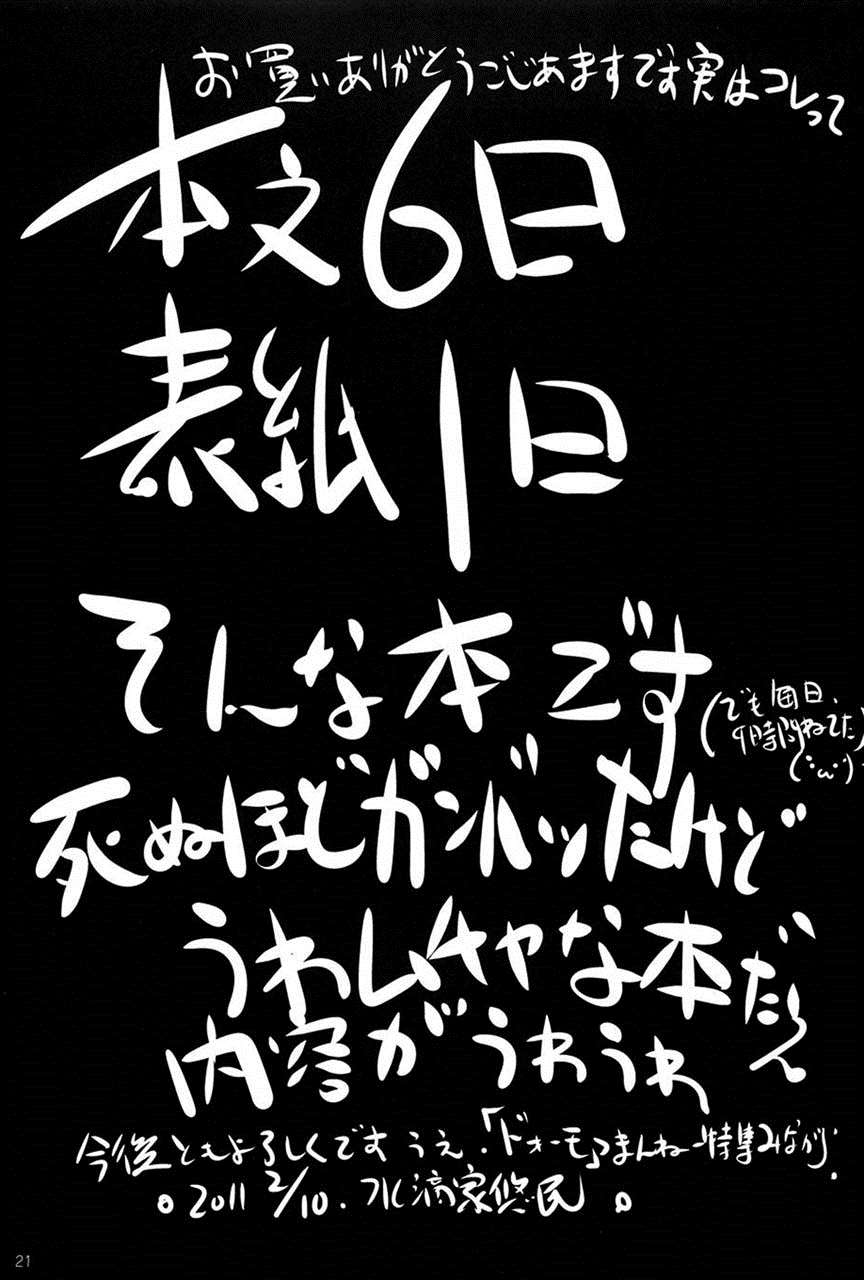 お買いありがとうごじあますです実はコレって
本文6日
表紙1日
そんな本です
(でも毎日、
9時間ねてた)
(:ω:)
死ぬほどガンバッたけど
うわムチャな本だ
内容がうわうわ
今後ともよろしくです うえ.「ドォーモ」まんねー特集みながら.
2011 2/10. 水滴家悠民
21